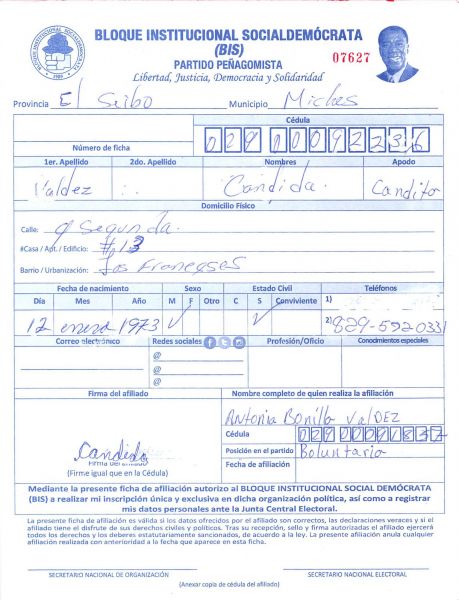 BLOQUE INSTITUCIONAL SOCIALDEMÓCRATA
(BIS)
PARTIDO PEÑAGOMISTA
07627
Libertad, Justicia, Democracia y Solidaridad
Provincia El Seibo Municipio Miches
Cédula
Número de ficha 029 00092236
1er. Apellido 2do. Apellido Nombres Apodo
Valdez Candida. Candita
Domicilio Físico
Calle: 9 Segunda.
#Casa / Apt. / Edificio: #13
Barrio / Urbanización: Los Franceses
Fecha de nacimiento Sexo Estado Civil Teléfonos
Día Mes Año M F Otro C S Conviviente 1)
12 enero 1973 2) 829-5920331
Correo electrónico Redes sociales Profesión/Oficio Conocimientos especiales
@
@
@
Firma del afiliado Nombre completo de quien realiza la afiliación
Antonia Bonilla VALDEZ
Cédula
Candida Posición en el partido Boluntario
Firma del afiliado Fecha de afiliación
(Firme igual que en la Cédula)
Mediante la presente ficha de afiliación autorizo al BLOQUE INSTITUCIONAL SOCIAL DEMÓCRATA
(BIS) a realizar mi inscripción única y exclusiva en dicha organización política, así como a registrar
mis datos personales ante la Junta Central Electoral.
La presente ficha de afiliación es válida si los datos ofrecidos por el afiliado son correctos, las declaraciones veraces y si el
afiliado tiene el disfrute de sus derechos civiles y políticos. Tras su recepción, sello y firma autorizados el afiliado ejercerá
todos los derechos y los deberes estatutariamente sancionados, de acuerdo a la ley. La presente afiliación anula cualquier
afiliación realizada con anterioridad a la fecha que aparece en esta ficha.
SECRETARIO NACIONAL DE ORGANIZACIÓN SECRETARIO NACIONAL ELECTORAL
(Anexar copia de cédula del afiliado)